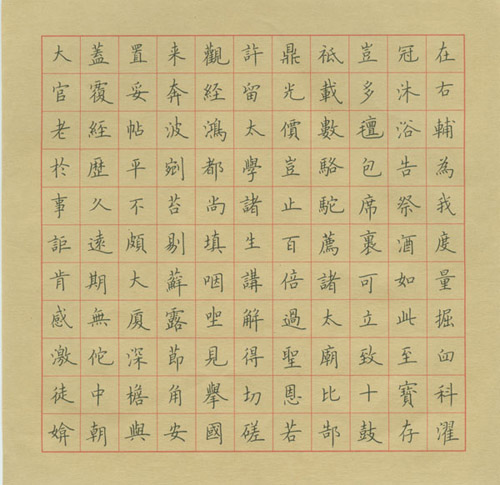 在右輔為我度量掘臼科濯
冠沐浴告祭酒如此至寶存
豈多氊包席裹可立致十鼓
祇載數駱駝薦諸太廟比郜
鼎光價豈止百倍過聖恩若
許留太學諸生講解得切磋
觀経鴻都尚填咽坐見舉國
来奔波剜苔剔蘚露節角安
置妥帖平不頗大廈深檐與
蓋覆経歷久遠期無佗中朝
大官老於事詎肯感激徒媕